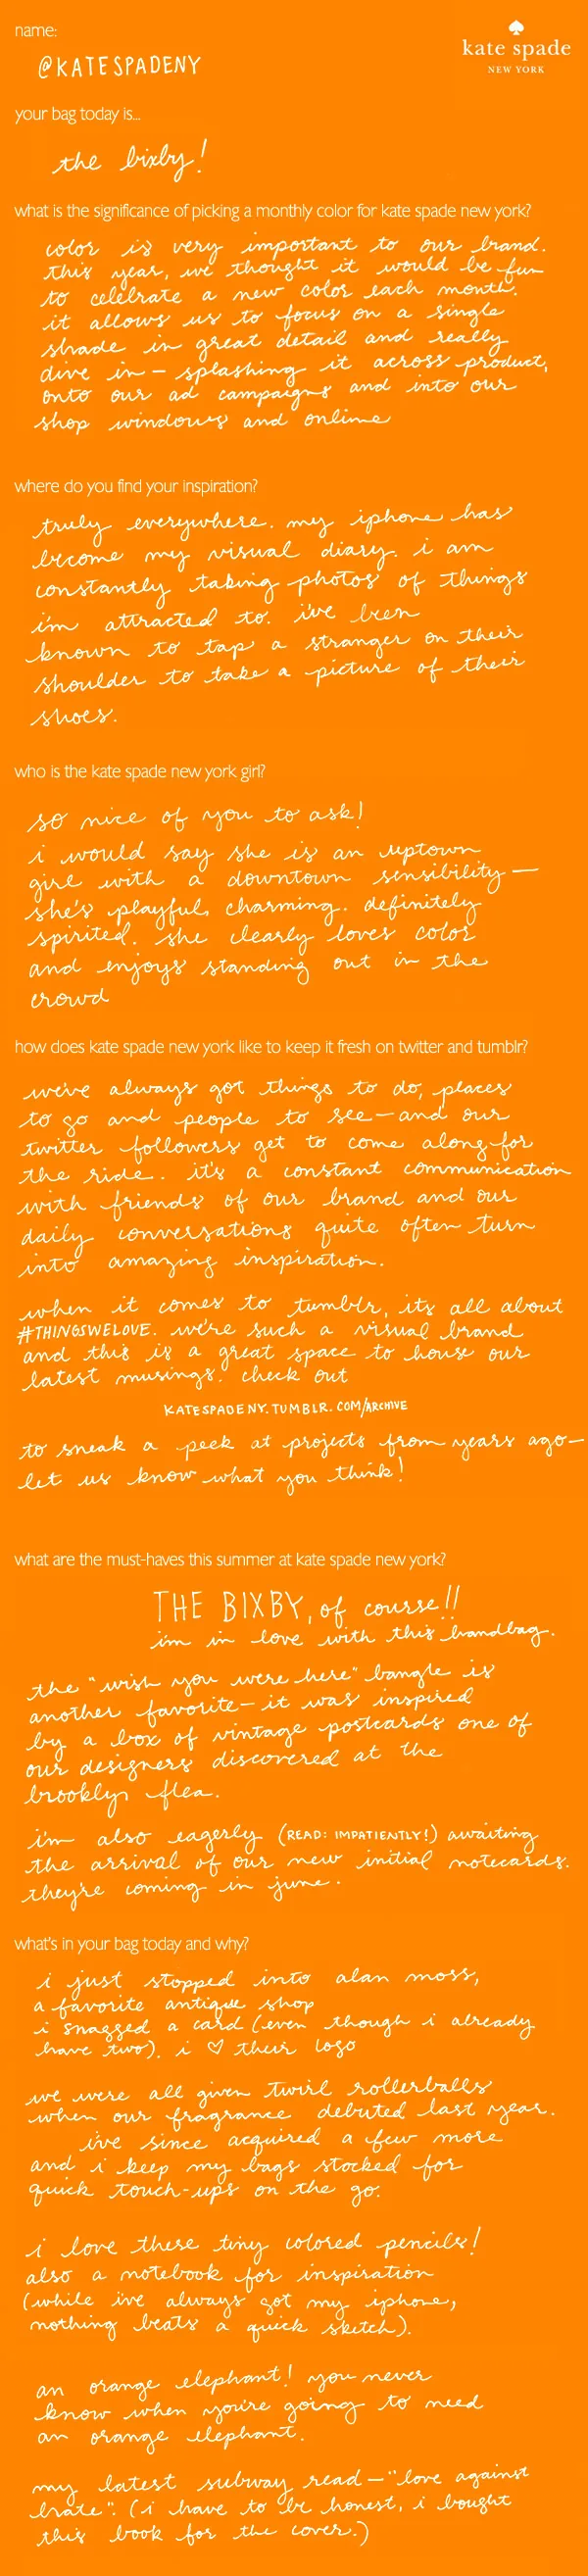 name:
kate spade
NEW YORK
@KATESPADENY
your bag today is...
the bixby!
what is the significance of picking a monthly color for kate spade new york?
color is very important to our brand.
this year, we thought it would be fun
to celebrate a new color each month.
it allows us to focus on a single
shade in great detail and really
dive in — splashing it across product,
onto our ad campaigns and into our
shop windows and online
where do you find your inspiration?
truly everywhere. my iphone has
become my visual diary. i am
constantly taking photos of things
i'm attracted to. i've been
known to tap a stranger on their
shoulder to take a picture of their
shoes.
who is the kate spade new york girl?
so nice of you to ask!
i would say she is an uptown
girl with a downtown sensibility —
she's playful, charming. definitely
spirited. she clearly loves color
and enjoys standing out in the
crowd
how does kate spade new york like to keep it fresh on twitter and tumblr?
we've always got things to do, places
to go and people to see — and our
twitter followers get to come along for
the ride. it's a constant communication
with friends of our brand and our
daily conversations quite often turn
into amazing inspiration.
when it comes to tumblr, its all about
#THINGSWELOVE. we're such a visual brand
and this is a great space to house our
latest musings. check out
KATESPADENY.TUMBLR.COM/ARCHIVE
to sneak a peek at projects from years ago —
let us know what you think!
what are the must-haves this summer at kate spade new york?
THE BIXBY, of course!!
im in love with this handbag.
the "wish you were here" bangle is
another favorite — it was inspired
by a box of vintage postcards one of
our designers discovered at the
brooklyn flea.
i'm also eagerly (READ: IMPATIENTLY!) awaiting
the arrival of our new initial notecards.
they're coming in june.
what's in your bag today and why?
i just stopped into alan moss,
a favorite antique shop
i snagged a card (even though i already
have two). i ♡ their logo
we were all given twirl rollerballs
when our fragrance debuted last year.
i've since acquired a few more
and i keep my bags stocked for
quick touch-ups on the go.
i love these tiny colored pencils!
also a notebook for inspiration
(while i've always got my iphone,
nothing beats a quick sketch).
an orange elephant! you never
know when you're going to need
an orange elephant.
my latest subway read — "love against
hate". (i have to be honest, i bought
this book for the cover.)